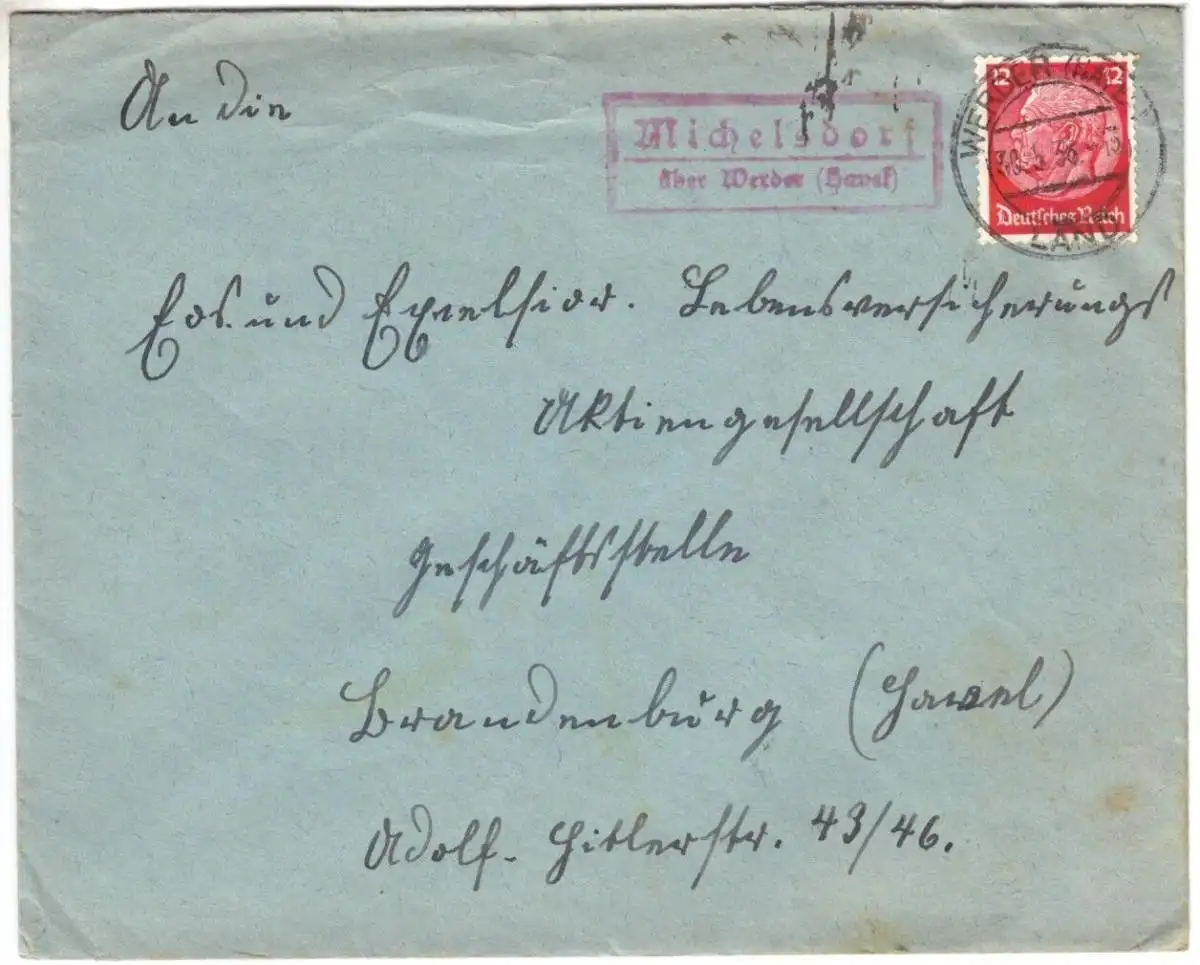 An die
Michelsdorf
über Werder (Havel)
12 12
WERDER (HAVEL)
Deutsches Reich
LAND
Eos. und Excelsior. Lebensversicherungs
Aktiengesellschaft
Geschäftsstelle
Brandenburg (Havel)
Adolf-Hitlerstr. 43/46.